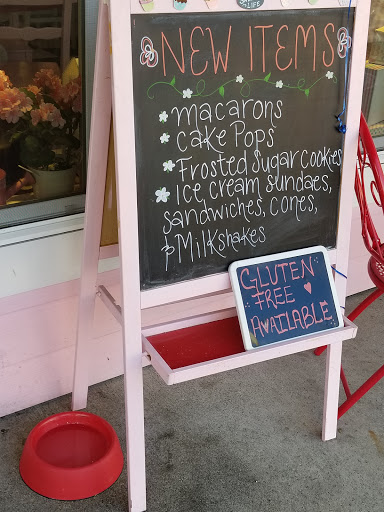 LIFE
NEW ITEMS
macarons
cake Pops
Frosted Sugar cookies
Ice cream sundaes,
sandwiches, cones,
Milkshakes
GLUTEN
FREE
AVAILABLE